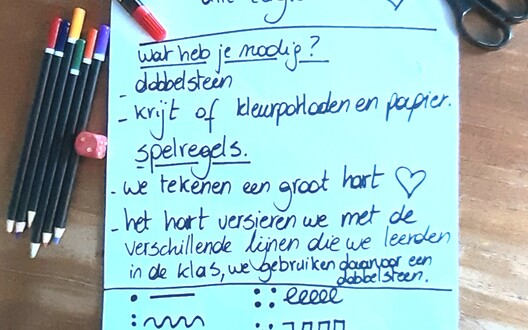 wat heb je nodig?
dobbelsteen
- krijt of kleurpotloden en papier.
spelregels.
- we tekenen een groot hart ♡
- het hart versieren we met de
verschillende lijnen die we leerden
in de klas, we gebruiken daarvoor een
dobbelsteen.